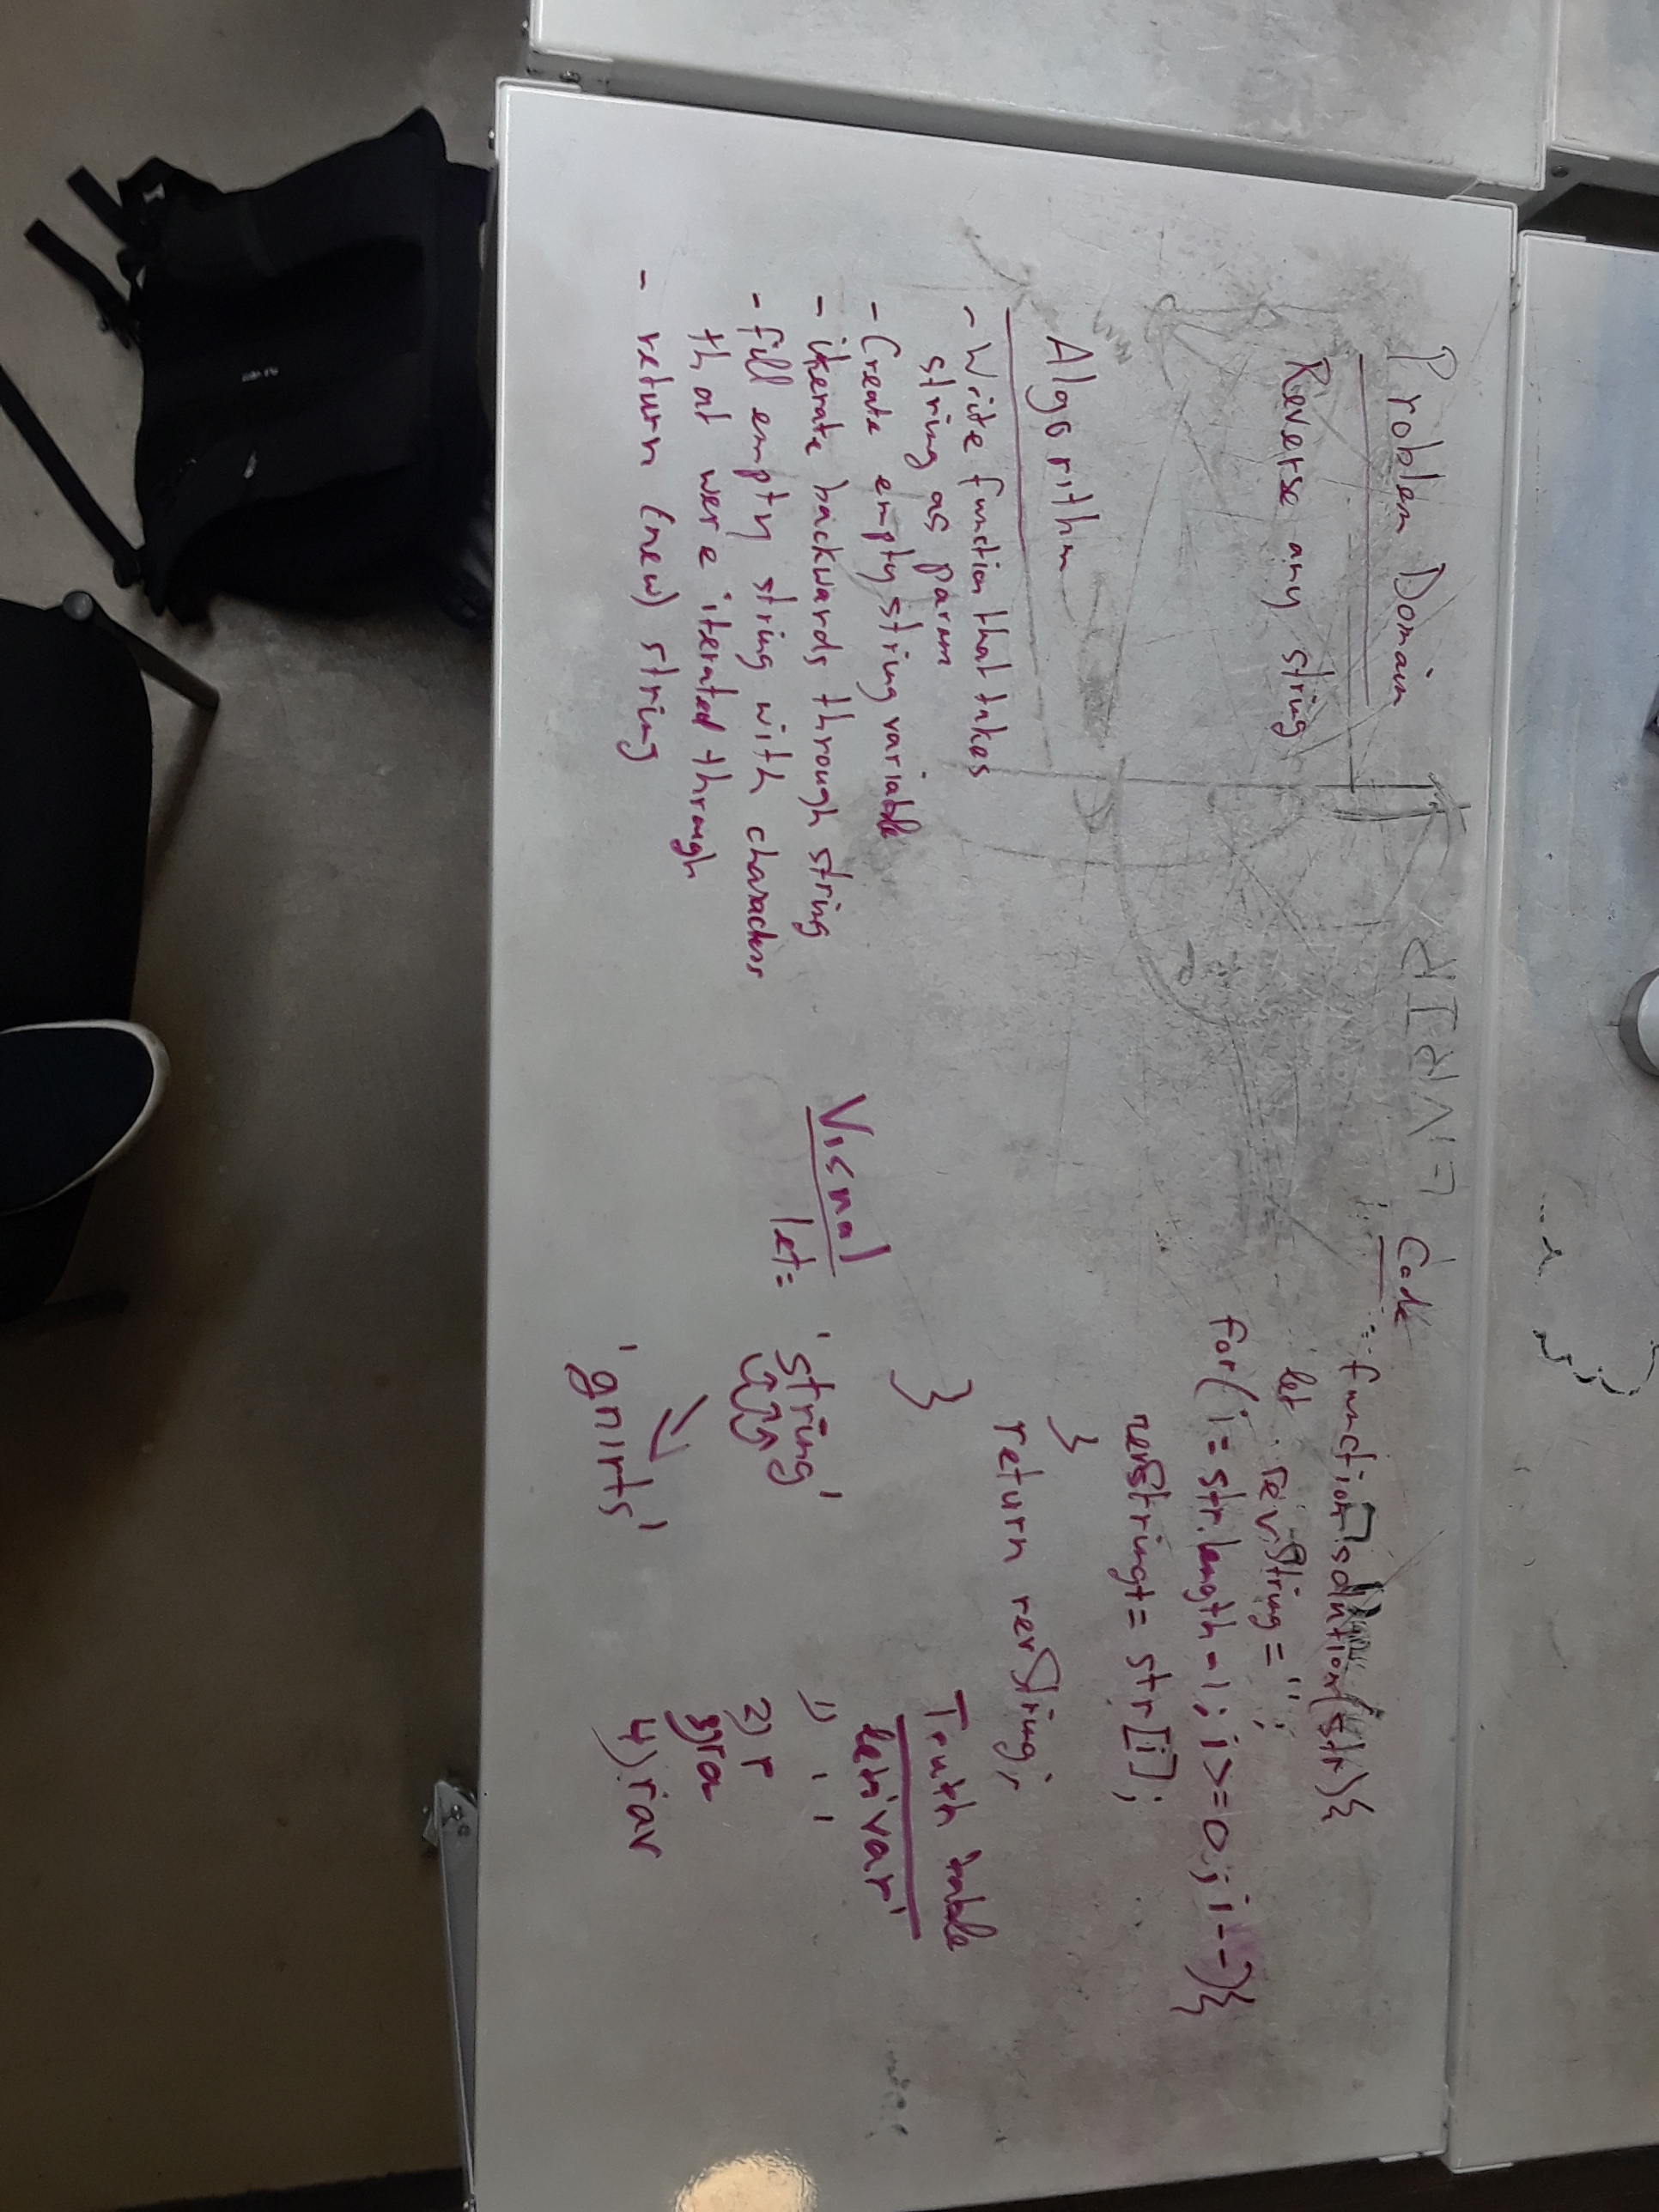 Problem Domain
Reverse any string
Algorithm
- Write function that takes
string as param
- Create empty string variable
- iterate backwards through string
- fill empty string with characters
that were iterated through
- return (new) string
Code
function solution(str){
let revString = '';
for(i = str.length - 1; i >= 0; i--){
revString += str[i];
}
return revString;
}
Visual
let =
'string'
'gnirts'
Truth table
let 'var'
1) ' '
2) r
3) ra
4) rav